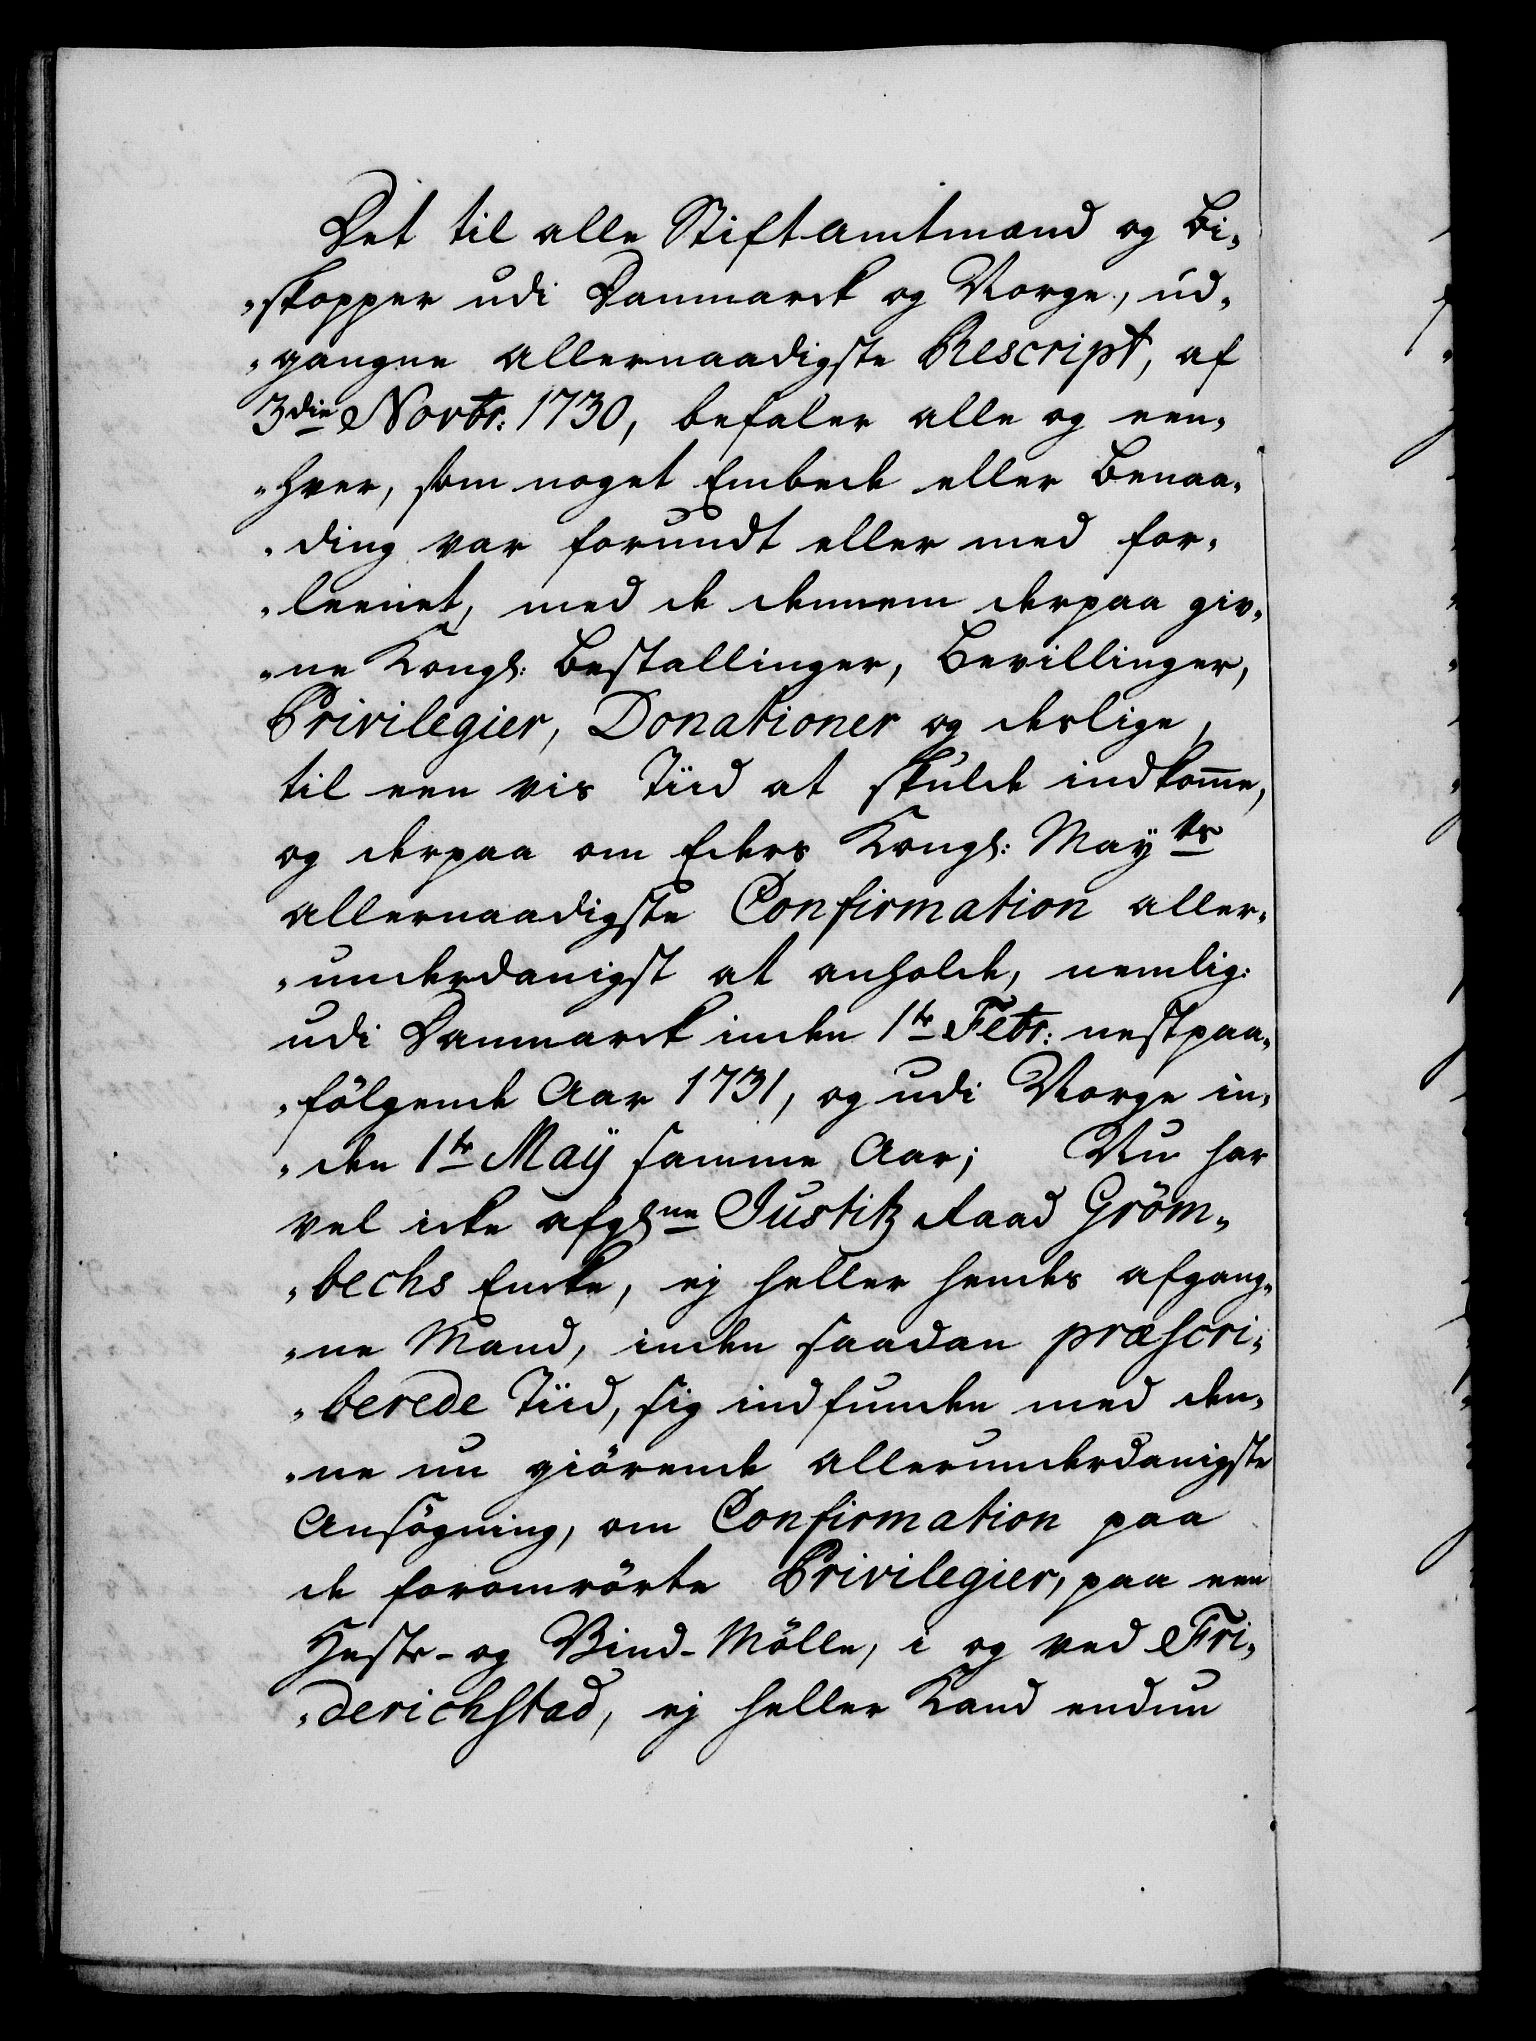 Det til alle Stiftamtmænd og Bi„
„skopper udi Danmarck og Norge, ud„
„gangne allernaadigste Rescript, af
3die Novbr: 1730, befaler alle og een„
„hver, som noget Embede eller Benaa„
„ding var forundt eller med for„
„leenet, med de dennem derpaa giv„
„ne Kongl: Bestallinger, Bevillinger,
Privilegier, Donationer og deslige,
til een vis Tiid at skulde indkom̄e,
og derpaa om Eders Kongl: Mayts
allernaadigste Confirmation aller„
„underdanigst at anholde, nemlig:
udi Danmarck inden 1te Febr: nestpaa„
„følgende Aar 1731, og udi Norge in„
„den 1te Maÿ samme Aar; Nu har
vel icke afgl:ne Justitz Raad Gröm„
„bechs Encke, ej heller hendes afgang„
„ne Mand, inden saadan præscri„
„berede Tiid, sig indfunden med den„
„ne nu giörende allerunderdanigste
Ansögning, om Confirmation paa
de foromrörte Privilegier, paa een
Heste- og Vind-Mölle, i og ved Fri„
„derichstad, ej heller Kand endnu